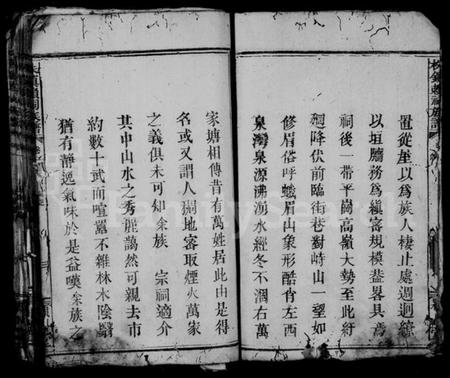 置從堂以為族人棲止處迴迴繚
以垣牆務為縝密規模益畧具焉
祠後一帶平崗高嶺大勢至此紆
迴降伏前臨街巷對峙山一望如
修眉俗呼蛾眉山象形酷肖左西
泉灣泉源沸湧水經冬不涸右萬
家塘相傳昔有萬姓居此由是得
名或又謂人稠地密取煙火萬家
之義俱未可知余族 宗祠適介
其中山水之秀龍蔼然可親去市
約數十武而喧囂不雜林木陰翳
猶有靜逸氣味於是益嘆余族之
FamilySearch